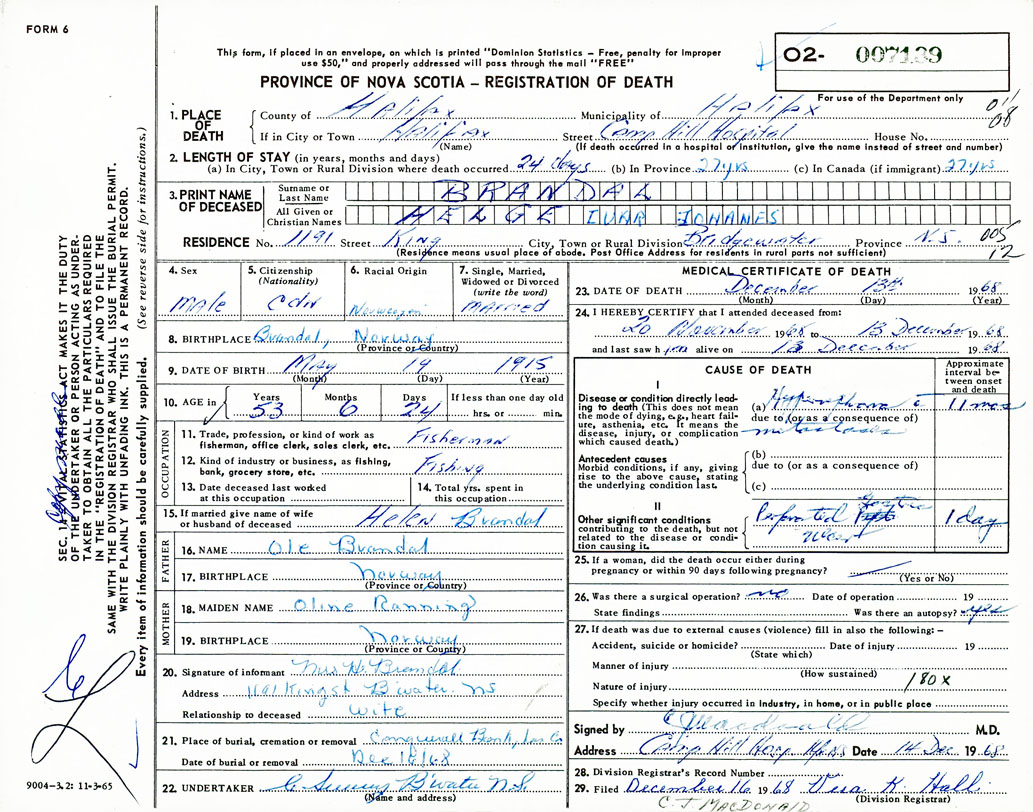 FORM 6
This form, if placed in an envelope, on which is printed "Dominion Statistics – Free, penalty for improper
use $50," and properly addressed will pass through the mail "FREE"
PROVINCE OF NOVA SCOTIA – REGISTRATION OF DEATH
02- 007139
For use of the Department only
011
08
1. PLACE OF DEATH
County of Halifax Municipality of Halifax
If in City or Town Halifax Street Camp Hill Hospital House No.
(Name) (If death occurred in a hospital or institution, give the name instead of street and number)
2. LENGTH OF STAY (in years, months and days)
(a) In City, Town or Rural Division where death occurred 24 days (b) In Province 27 yrs (c) In Canada (if immigrant) 27 yrs
3. PRINT NAME OF DECEASED
Surname or Last Name BRANDAL
All Given or Christian Names HELGE IVAR JOHANES
RESIDENCE No. 1191 Street King City, Town or Rural Division Bridgewater Province N.S. 005
(Residence means usual place of abode. Post Office Address for residents in rural parts not sufficient) 12
4. Sex Male
5. Citizenship (Nationality) CDN
6. Racial Origin Norwegian
7. Single, Married, Widowed or Divorced (write the word) MARRIED
8. BIRTHPLACE Brandal, Norway
(Province or Country)
9. DATE OF BIRTH May 19 1915
(Month) (Day) (Year)
10. AGE in Years 53 Months 6 Days 24 If less than one day old hrs. or min.
OCCUPATION
11. Trade, profession, or kind of work as fisherman, office clerk, sales clerk, etc. Fisherman
12. Kind of industry or business, as fishing, bank, grocery store, etc. Fishing
13. Date deceased last worked at this occupation
14. Total yrs. spent in this occupation
15. If married give name of wife or husband of deceased Helen Brandal
FATHER
16. NAME Ole Brandal
17. BIRTHPLACE Norway
(Province or Country)
MOTHER
18. MAIDEN NAME Oline Ranning
19. BIRTHPLACE Norway
(Province or Country)
20. Signature of informant Mrs H. Brandal
Address 1191 King St B'water. NS
Relationship to deceased wife
21. Place of burial, cremation or removal Conquerall Bank, Lun Co
Date of burial or removal Dec 16/68
22. UNDERTAKER B'water N.S.
(Name and address)
MEDICAL CERTIFICATE OF DEATH
23. DATE OF DEATH December 13th 1968
(Month) (Day) (Year)
24. I HEREBY CERTIFY that I attended deceased from:
20 November 1968 to 13 December 1968
and last saw him alive on 13 December 1968
CAUSE OF DEATH
Approximate interval between onset and death
I
Disease or condition directly leading to death (This does not mean the mode of dying, e.g., heart failure, asthenia, etc. It means the disease, injury, or complication which caused death.)
(a) Hypernephroma c 11 mos
due to (or as a consequence of)
metastases
Antecedent causes
Morbid conditions, if any, giving rise to the above cause, stating the underlying condition last.
(b)
due to (or as a consequence of)
(c)
II
Other significant conditions contributing to the death, but not related to the disease or condition causing it.
Perforated gastric ulcer 1 day
25. If a woman, did the death occur either during pregnancy or within 90 days following pregnancy?
(Yes or No)
26. Was there a surgical operation? no Date of operation 19
State findings Was there an autopsy? yes
27. If death was due to external causes (violence) fill in also the following: –
Accident, suicide or homicide? Date of injury 19
(State which)
Manner of injury
(How sustained)
Nature of injury 180 X
Specify whether injury occurred in industry, in home, or in public place
Signed by M.D.
Address Camp Hill Hosp Hfx Date 14 Dec 1968
28. Division Registrar's Record Number
29. Filed December 16 1968 K. Hall
(Division Registrar)
C J MACDONALD
SEC. VITAL STATISTICS ACT MAKES IT THE DUTY
OF THE UNDERTAKER OR PERSON ACTING AS UNDERTAKER TO OBTAIN ALL THE PARTICULARS REQUIRED
IN THE "REGISTRATION OF DEATH" AND TO FILE THE
SAME WITH THE DIVISION REGISTRAR WHO SHALL ISSUE THE BURIAL PERMIT.
WRITE PLAINLY WITH UNFADING INK. THIS IS A PERMANENT RECORD.
Every item of information should be carefully supplied. (See reverse side for instructions.)
9004–3.2: 11-3-65